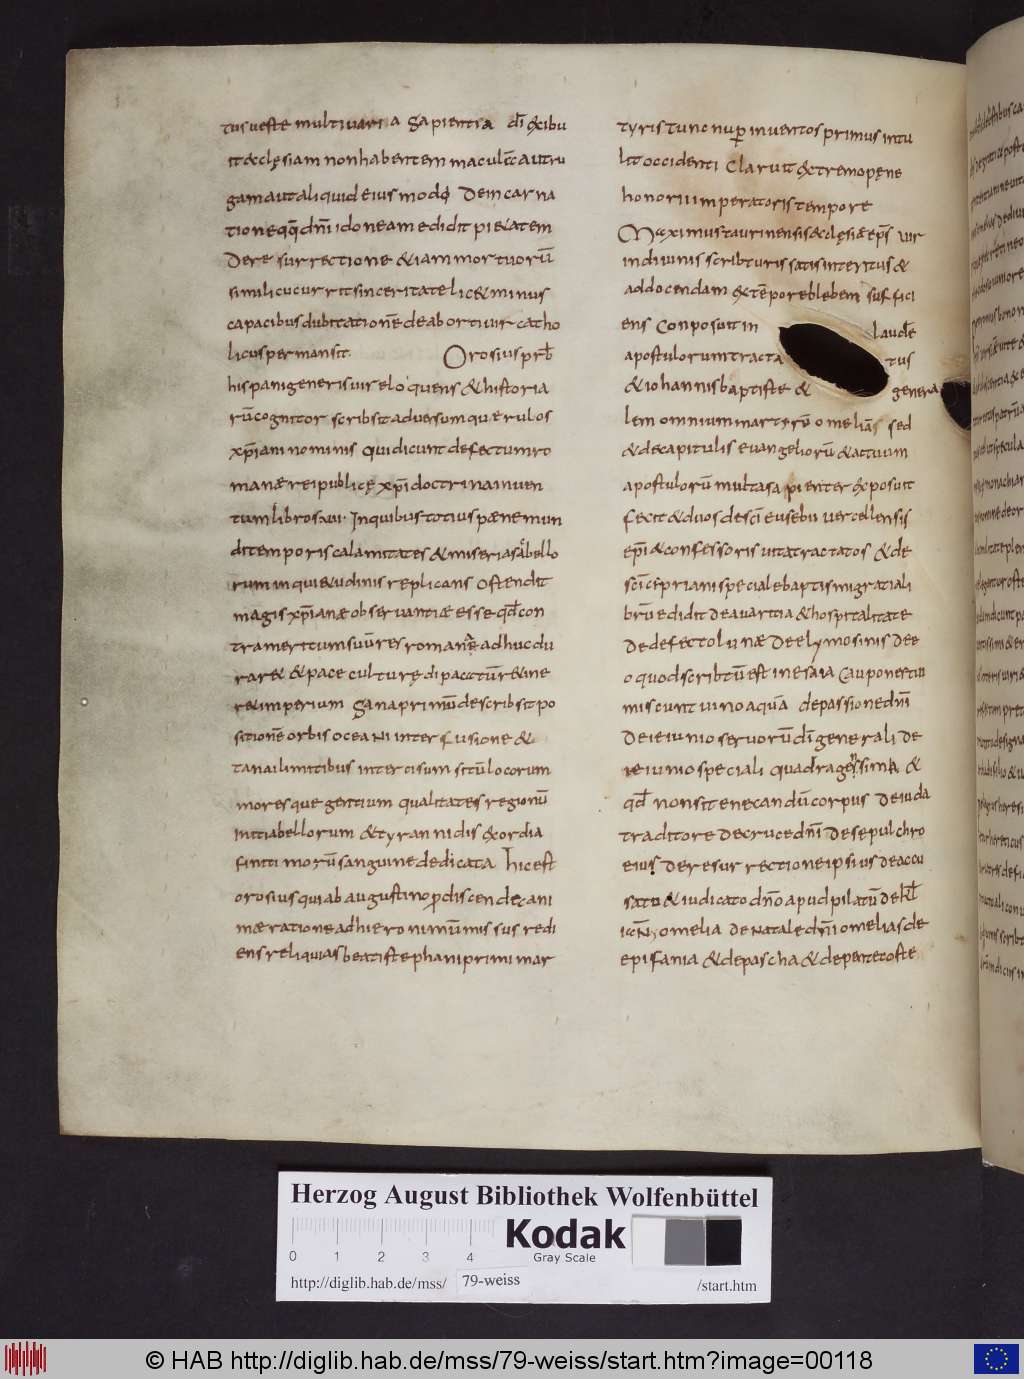 tus ueste multiuaria sapientia dī exibu
it ecclęsiam non habentem maculā aut ru
gam aut aliquid eius modi De incarna
tione quoq; dnī idonea medidit pietatem
De resurrectione etiam mortuorū
simili cucurrit sinceritate licet minus
capacibus dubitationē de abortiuis catho
licus permansit. Orosius prb
hispani generis uir eloquens & historia
rū cognitor scribsit aduersum querulos
xpīani nominis qui dicunt defectum ro
manæ rei publicę xpī doctrina inuen
tum libros .vii. In quibus totius pæne mun
di temporis calamitates & miserias ac bello
rum inquietudinis replicans Ostendit
magis xpīanæ obseruantiæ esse qđ con
tra meritum suū res romana adhuc du
raret & pace culturę dī pacatū retine
ret imperium Sane primū describsit po
sitionē orbis oceani interfusione &
tanai limitibus intercisum sitū locorum
mores que gentium qualitates regionū
initia bellorum & tyrannidis exordia
finitimorū sanguine dedicata hic est
orosius qui ab augustino p discenda ani
mæ ratione ad hieronimum missus redi
ens reliquias beati stephani primi mar
tyris tunc nuper inuentos primus intu
lit occidenti Claruit extremo pęne
honorii imperatoris tempore
Maximus taurinensis ecclęsiæ ēps uir
in diuinis scribturis satis intentus &
ad docendam extēpore blebem suffici
ens Conposuit in laudē
apostulorum tracta tus
& iohannis baptiste & genera
lem omnium martyrū omeliās sed
& de capitulis euangeliorū & actuum
apostulorū multa sapienter exposuit
fecit & duos de scī eusebii uercellensis
epī & confessoris uita tractatos & de
scī cipriani speciale baptismi gratia li
brū edidit De auaritia & hospitalitate
De defecto lunæ De elymosinis De e
o quod scribtū est in esaia Caupones tui
miscunt uino aquā de passione dnī
De ieiunio seruorū dī generali De
ieiunio speciali quadragessimæ &
qđ non sit enecandū corpus De iuda
traditore De cruce dnī De sepulchro
eius De resurrectione ipsius De accu
sato & iudicato dnō apud pilatū De kl
iaN; omelia De natale dnī omelias de
epifania & de pascha & de pentecoste
Herzog August Bibliothek Wolfenbüttel
0 1 2 3 4
Kodak
Gray Scale
http://diglib.hab.de/mss/ 79-weiss /start.htm
© HAB http://diglib.hab.de/mss/79-weiss/start.htm?image=00118